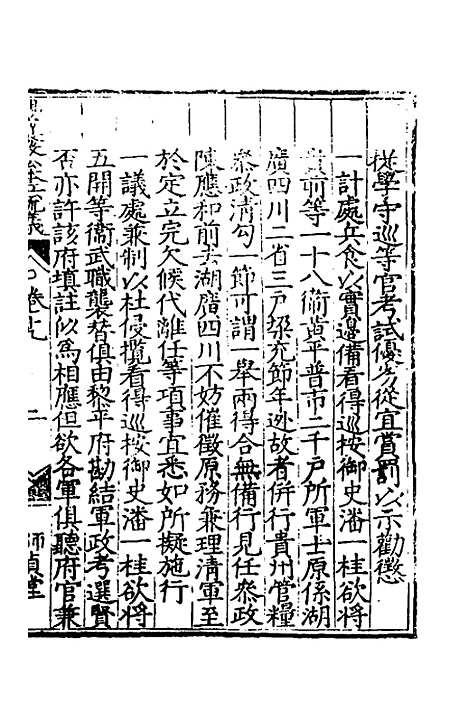 從學守巡等官考試優劣從宜賞罰以示勸懲
一計處兵食以實邊備看得巡按御史潘一桂欲將
貴前等一十八衛黃平普市二千戶所軍士原係湖
廣四川二省三戶垛充節年逃故者併行貴州管糧
叅政清勾一節可謂一舉兩得合無備行見任叅政
陳應和前去湖廣四川不妨催徵原務兼理清軍至
於定立完欠候代離任等項事宜悉如所擬施行
一議處兼制以杜侵攬看得巡按御史潘一桂欲將
五開等衛武職襲替俱由黎平府勘結軍政考選賢
否亦許該府填註以為相應但欲各軍俱聽府官兼
卷十九
二
師貞堂